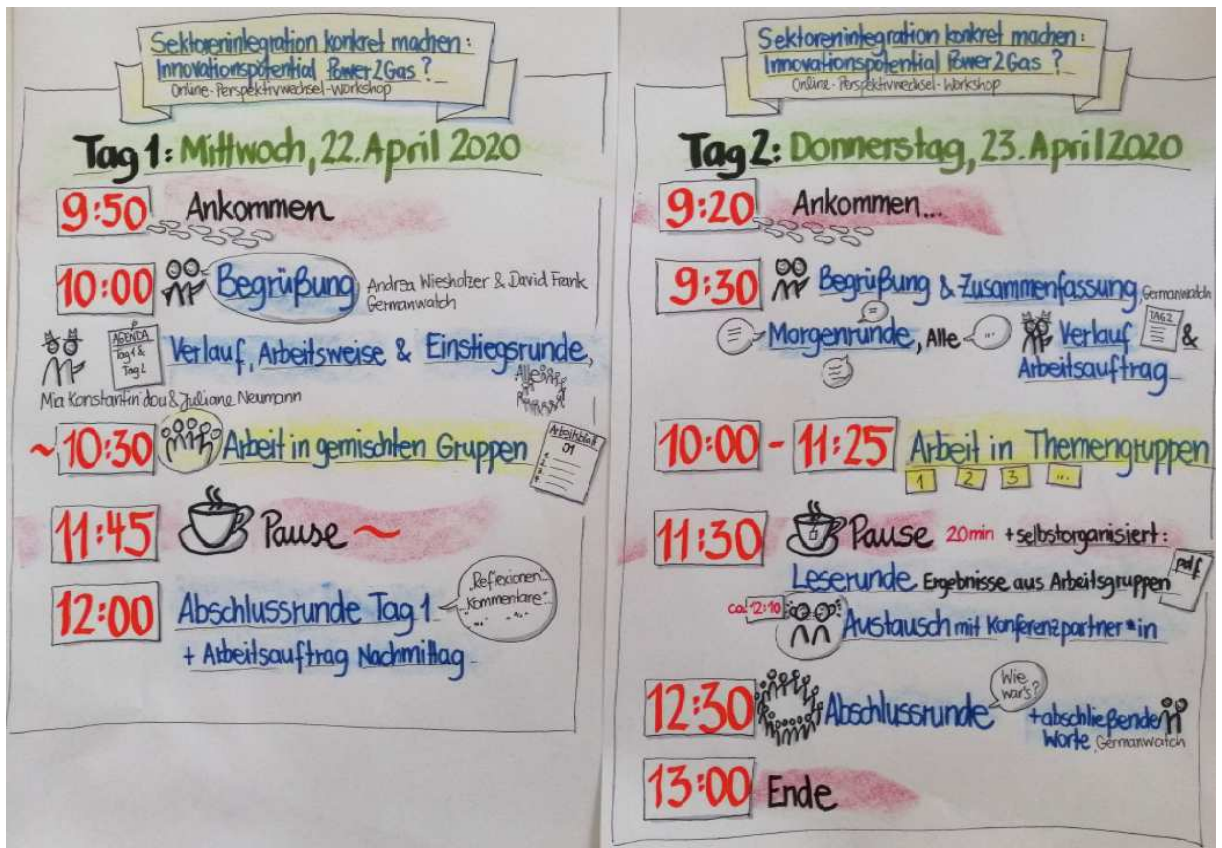 Sektorenintegration konkret machen:
Innovationspotential Power2Gas?
Online-Perspektivwechsel-Workshop
Tag 1: Mittwoch, 22. April 2020
9:50 Ankommen
10:00 Begrüßung Andrea Wiesholzer & David Frank
Germanwatch
AGENDA
Tag 1 &
Tag 2
Verlauf, Arbeitsweise & Einstiegsrunde,
Alle
Mia Konstantinidou & Juliane Neumann
~10:30 Arbeit in gemischten Gruppen
Arbeitsblatt
01
1.
2.
3.
4.
11:45 Pause ~
12:00 Abschlussrunde Tag 1
"Reflexionen"...
...Kommentare"...
+ Arbeitsauftrag Nachmittag
Sektorenintegration konkret machen:
Innovationspotential Power2Gas?
Online-Perspektivwechsel-Workshop
Tag 2: Donnerstag, 23. April 2020
9:20 Ankommen...
9:30 Begrüßung & Zusammenfassung, Germanwatch
Morgenrunde, Alle ... Verlauf &
TAG 2
Arbeitsauftrag
10:00 - 11:25 Arbeit in Themengruppen
1 2 3 ...
11:30 Pause 20min + selbstorganisiert:
Leserunde Ergebnisse aus Arbeitsgruppen
pdf
ca. 12:10 Austausch mit Konferenzpartner*in
12:30 Abschlussrunde
Wie
war's?
+ abschließende
Worte, Germanwatch
13:00 Ende